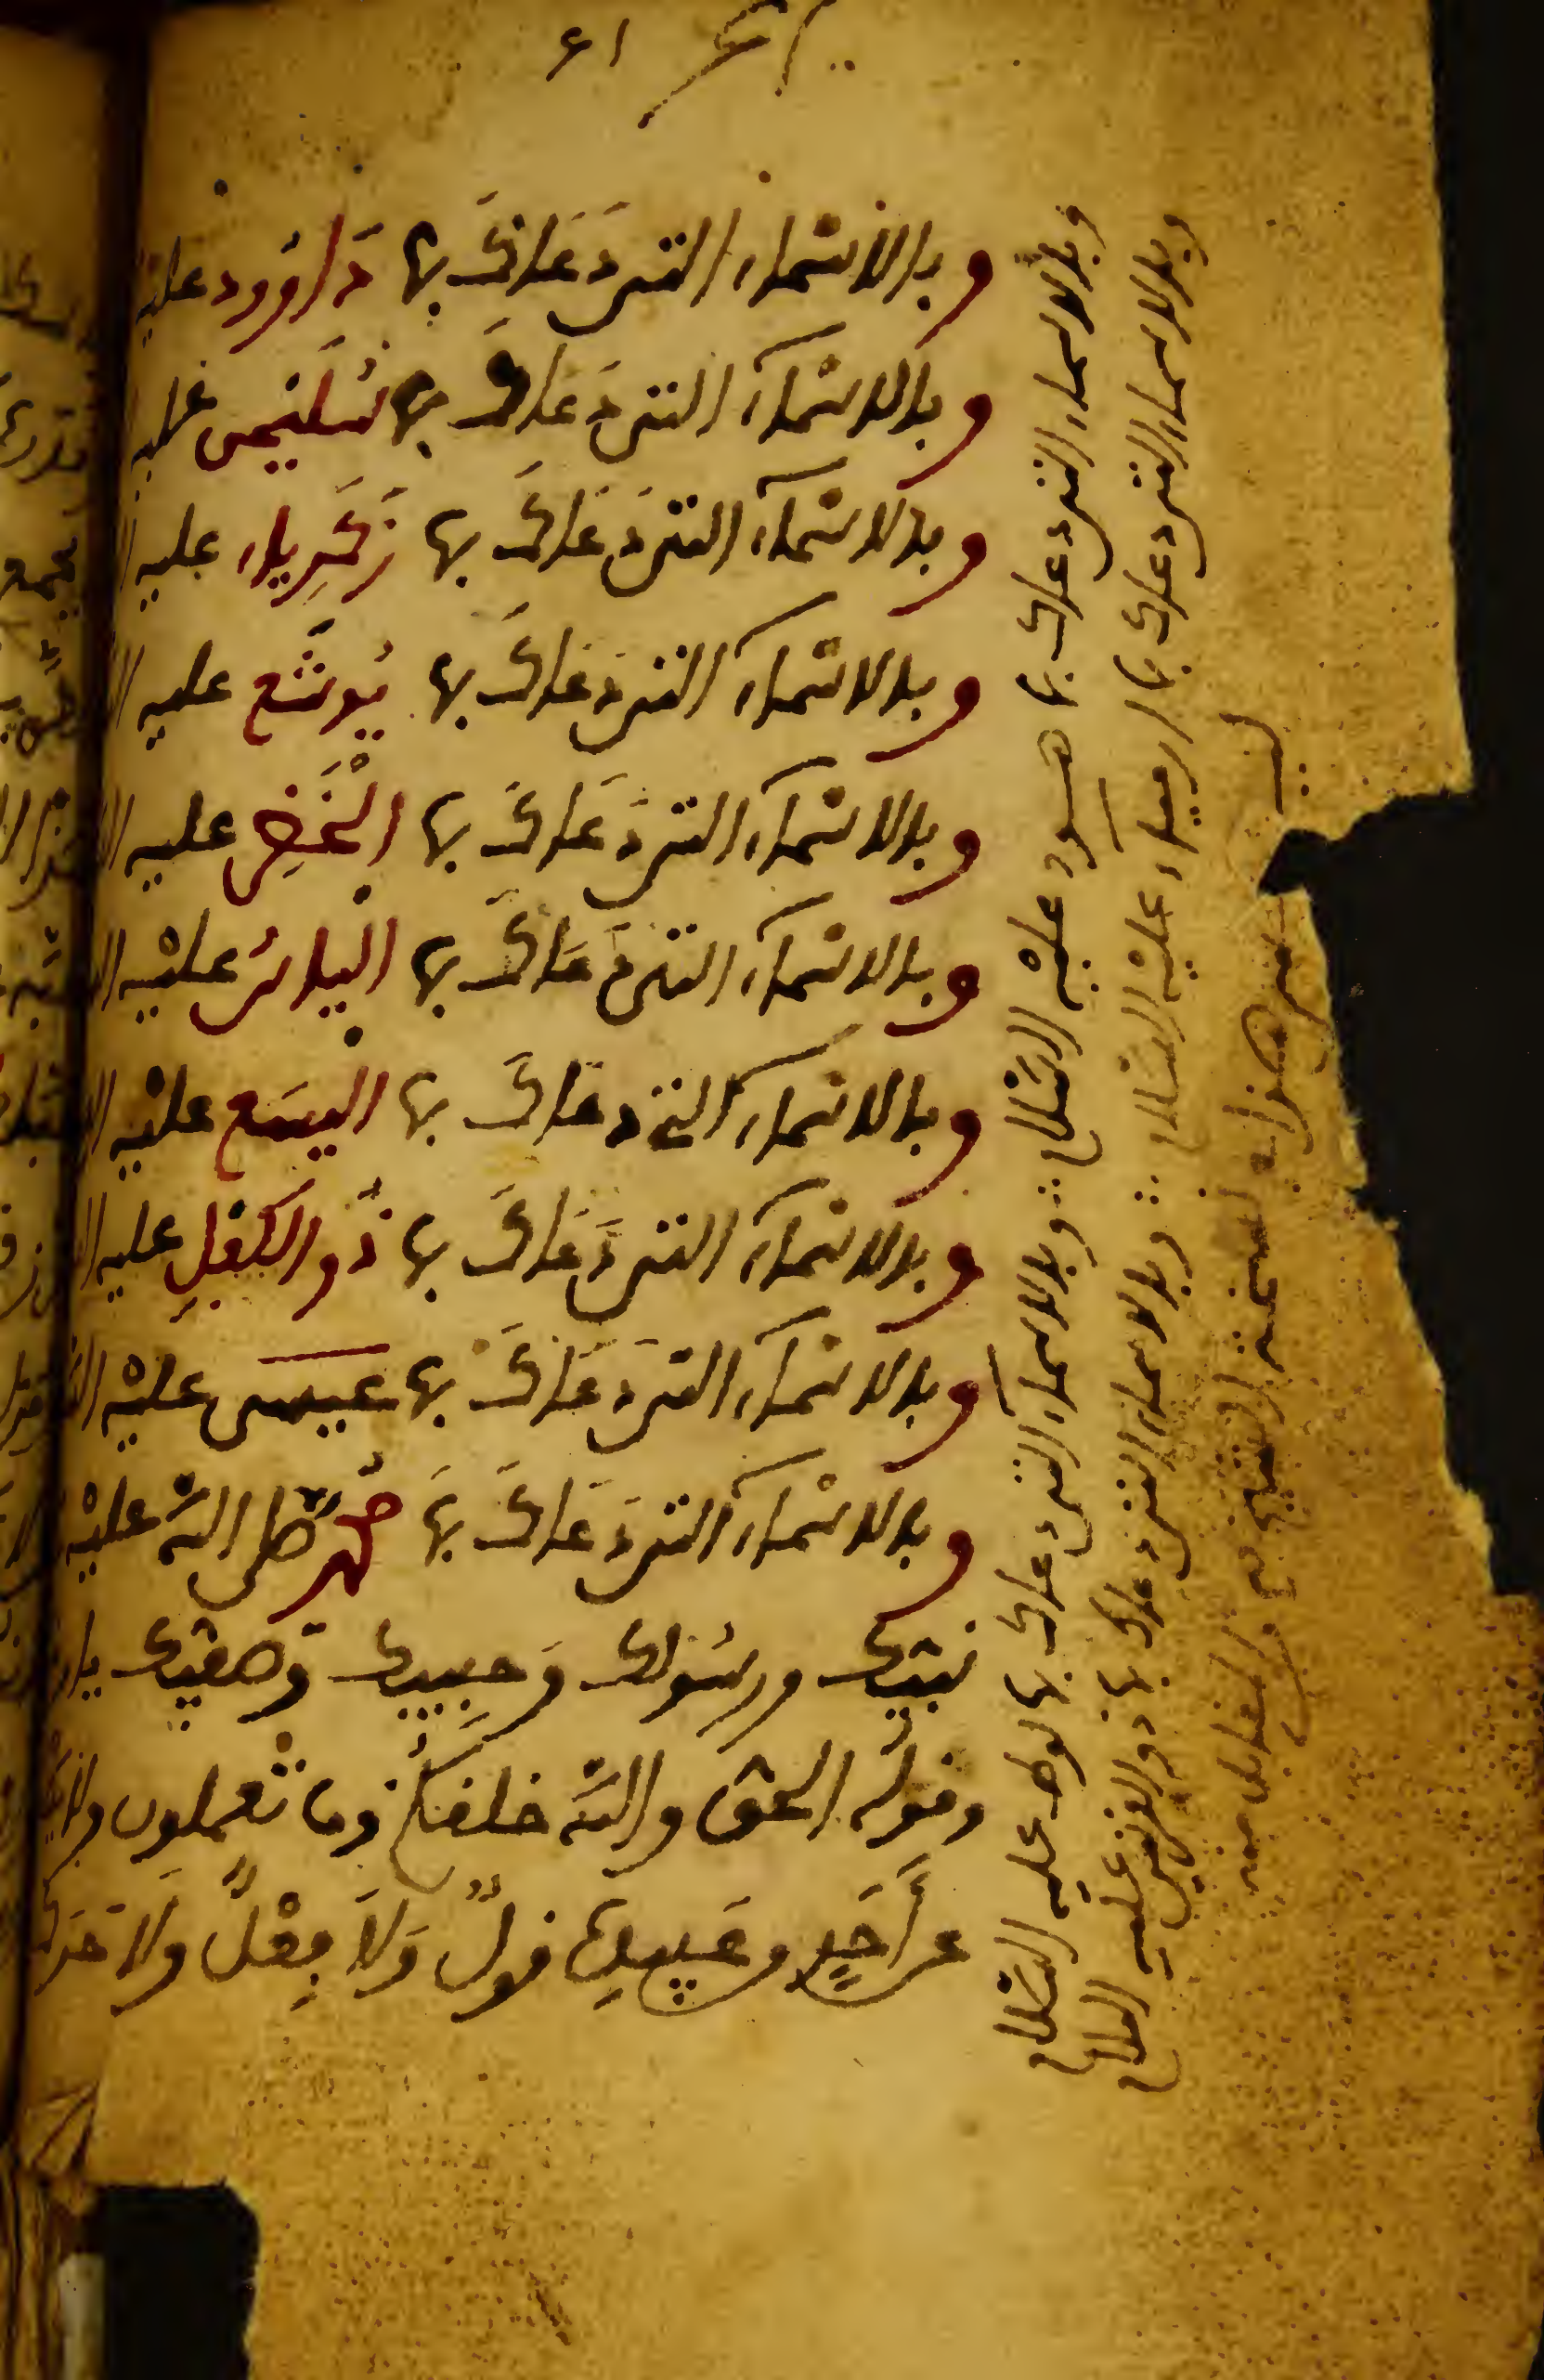 وبالاسْماء التي دَعَاكَ بها دَاوُود عليه
وبالاسْماء التي دَعَاكَ بها سُلَيْمٰن عليه
وبالاسْماء التي دَعَاكَ بها زَكَرِياء عليه
وبالاسْماء التي دَعَاكَ بها يُوشَع عليه
وبالاسْماء التي دَعَاكَ بها الْخَضِر عليه
وبالاسْماء التي دَعَاكَ بها اليَاسُ عليْه
وبالاسْماء التي دَعَاكَ بها اليسَع عليْه
وبالاسْماء التي دَعَاكَ بها ذُو الكِفْلِ عليه
وبالاسْماء التي دَعَاكَ بها عيسى عليْه
وبالاسْماء التي دَعَاكَ بهَا محمّد صلّى الله عليْه
نبيّك ورسُولك وَحبِيبِك وَصفيّك يا
وقولُه الحق والله خلَقَكُمْ وما تعْملون ولا
عن أَحَدٍ من عَبِيدِه قولٌ وَلاَ فِعْلٌ وَلاَ حَرَكة
وبالاسماء التي دعاك بها هود عليْه السّلام وبالاسماء التي دعاك بها لوط عليه السّلام
وبالاسماء التي دعاك بها ارمياء عليْه السّلام وبالاسماء التي دعاك بها ذو القرنين عليه السلام